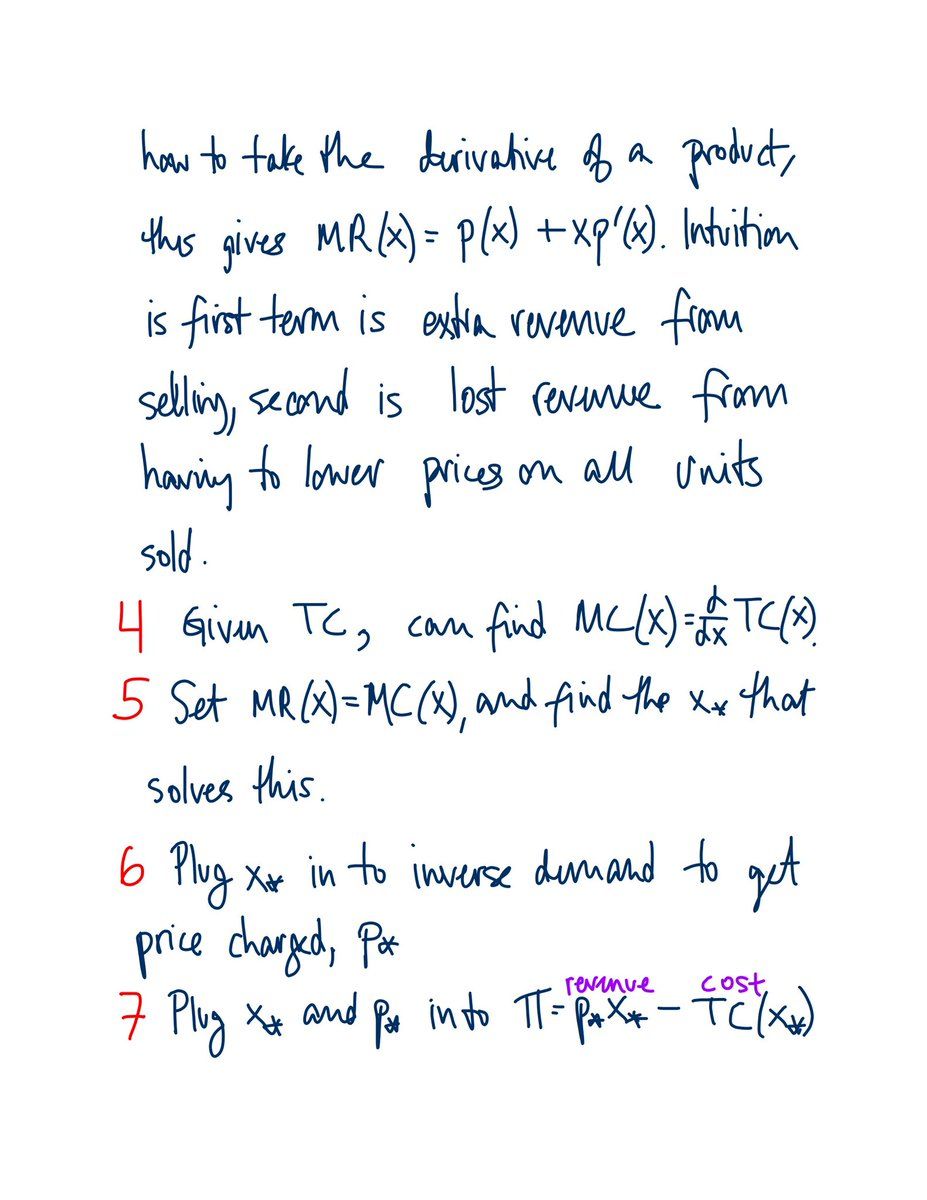 how to take the derivative of a product,
this gives MR(x) = p(x) + xp'(x). Intuition
is first term is extra revenue from
selling, second is lost revenue from
having to lower prices on all units
sold.
4 Given TC, can find MC(x) = d/dx TC(x).
5 Set MR(x) = MC(x), and find the x* that
solves this.
6 Plug x* in to inverse demand to get
price charged, p*
revenue cost
7 Plug x* and p* into Π = p*x* − TC(x*)